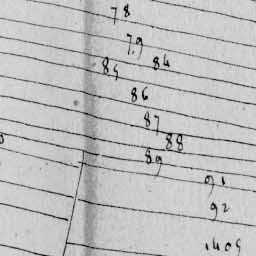 78
79
84
85
86
87
88
89
91
92